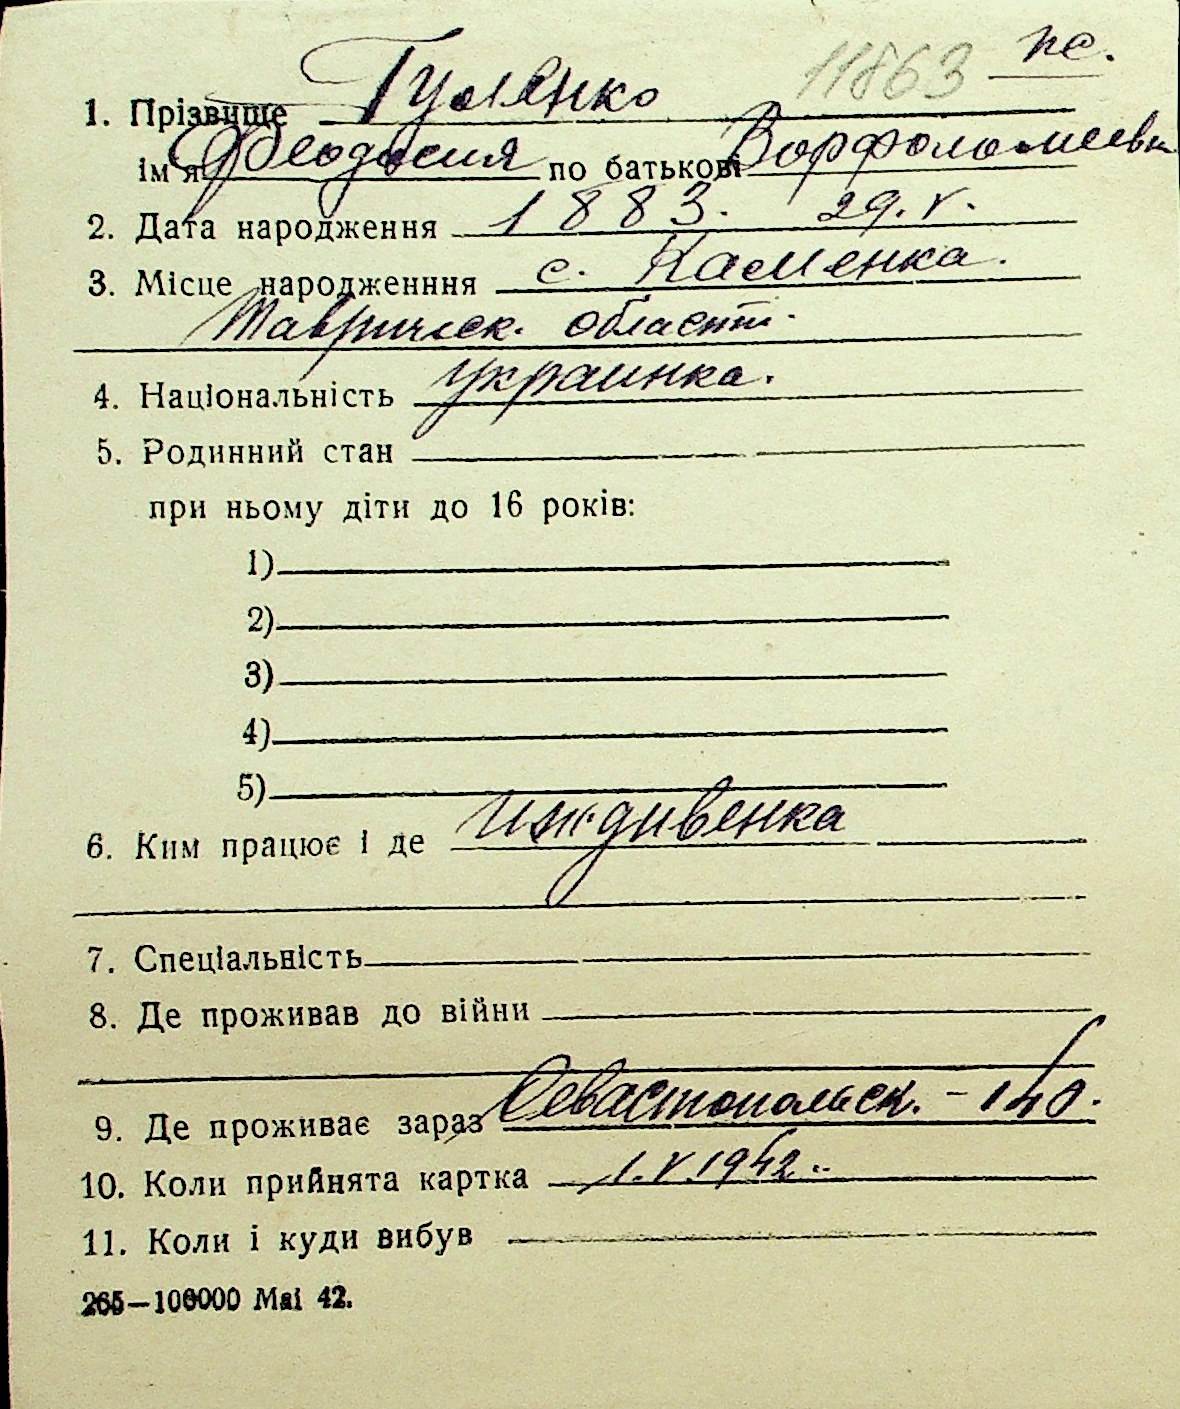 11863 пс.
1. Прізвище Гуленко
ім'я Феодосия по батькові Ворфоломеевн
2. Дата народження 1883. 29.V.
3. Місце народженння с. Каменка.
Таврическ. област.
4. Національність украинка.
5. Родинний стан
при ньому діти до 16 років:
1)
2)
3)
4)
5)
6. Ким працює і де иждивенка
7. Спеціальність
8. Де проживав до війни
9. Де проживає зараз Севастопольск. - 140.
10. Коли прийнята картка 1.V.1942..
11. Коли і куди вибув
265—100000 Маі 42.